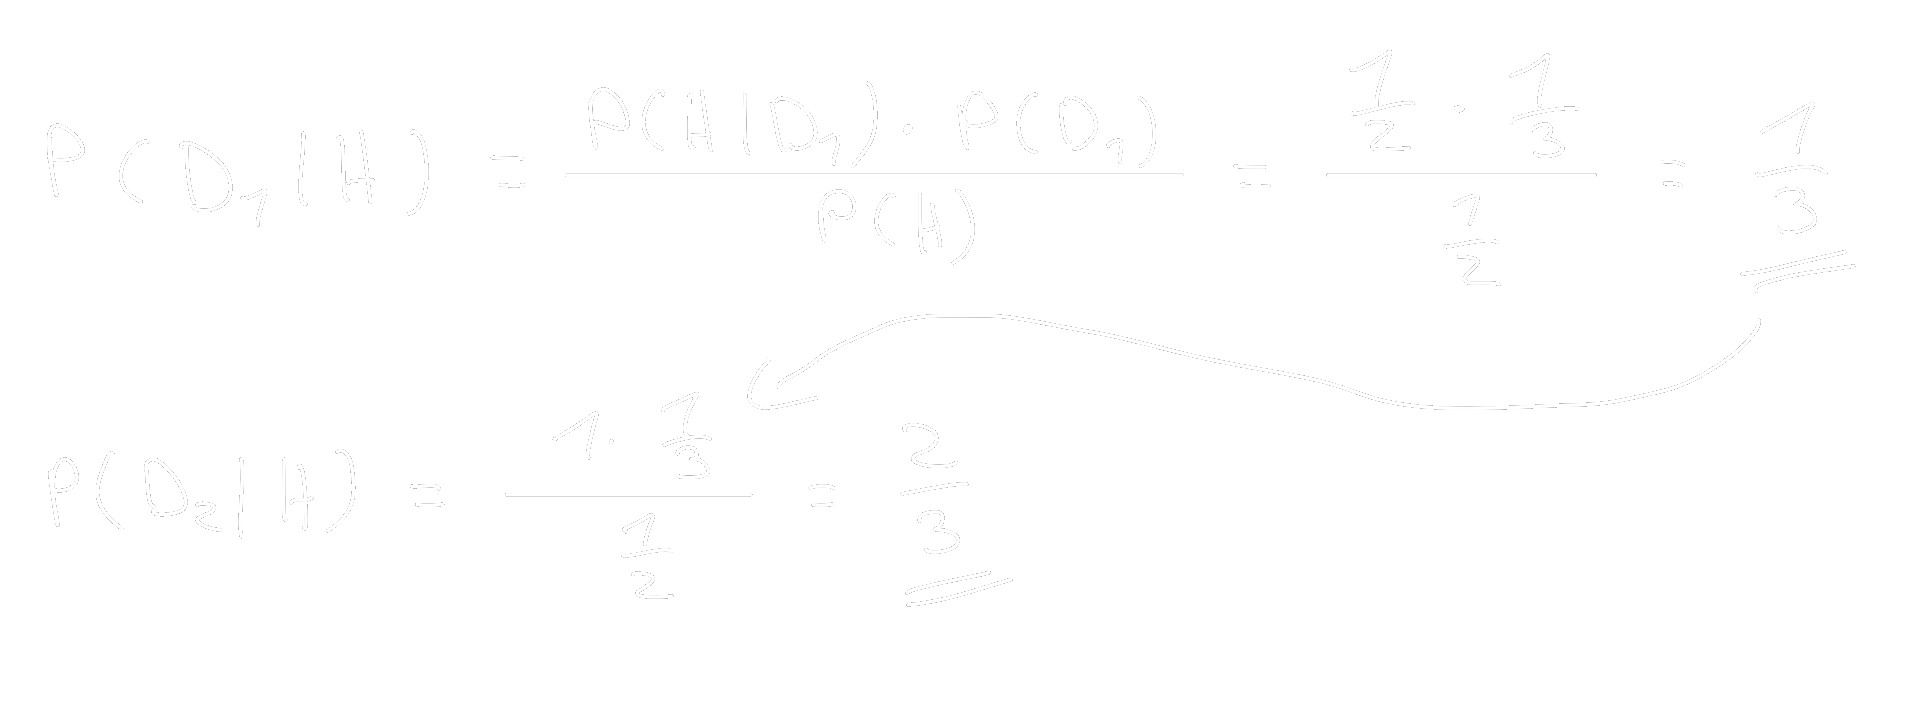 P(D₁|H) = (P(H|D₁) · P(D₁)) / P(H) = (1/2 · 1/3) / (1/2) = 1/3
P(D₂|H) = (1 · 1/3) / (1/2) = 2/3